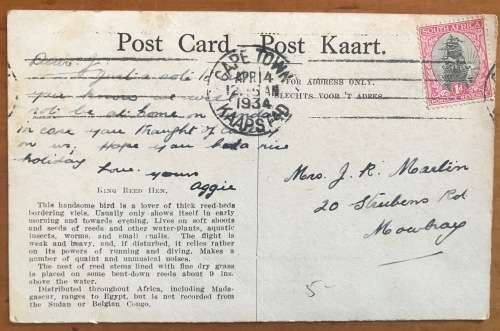 Post Card — Post Kaart.
SOUTH AFRICA
1D
CAPE TOWN
APR 14
12. AM
1934
KAAPSTAD
FOR ADDRESS ONLY.
SLECHTS VOOR 'T ADRES.
Dear
Just a
you know we
not be at home on
in case you thought of
on us, Hope you had a nice
holiday
Love. yours
Aggie
Mrs. J. R. Martin
20 Strubens Rd
Mowbray
5-
KING REED HEN.
This handsome bird is a lover of thick reed-beds
bordering vleis. Usually only shows itself in early
morning and towards evening. Lives on soft shoots
and seeds of reeds and other water-plants, aquatic
insects, worms, and small snails. The flight is
weak and heavy, and, if disturbed, it relies rather
on its powers of running and diving. Makes a
number of quaint and unmusical noises.
The nest of reed stems lined with fine dry grass
is placed on some bent-down reeds about 9 ins.
above the water.
Distributed throughout Africa, including Mada-
gascar, ranges to Egypt, but is not recorded from
the Sudan or Belgian Congo.